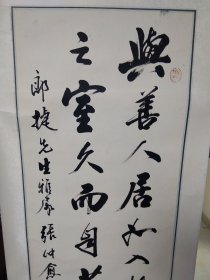 與善人居如入
之室久而自芳
郎捷先生雅屬 張